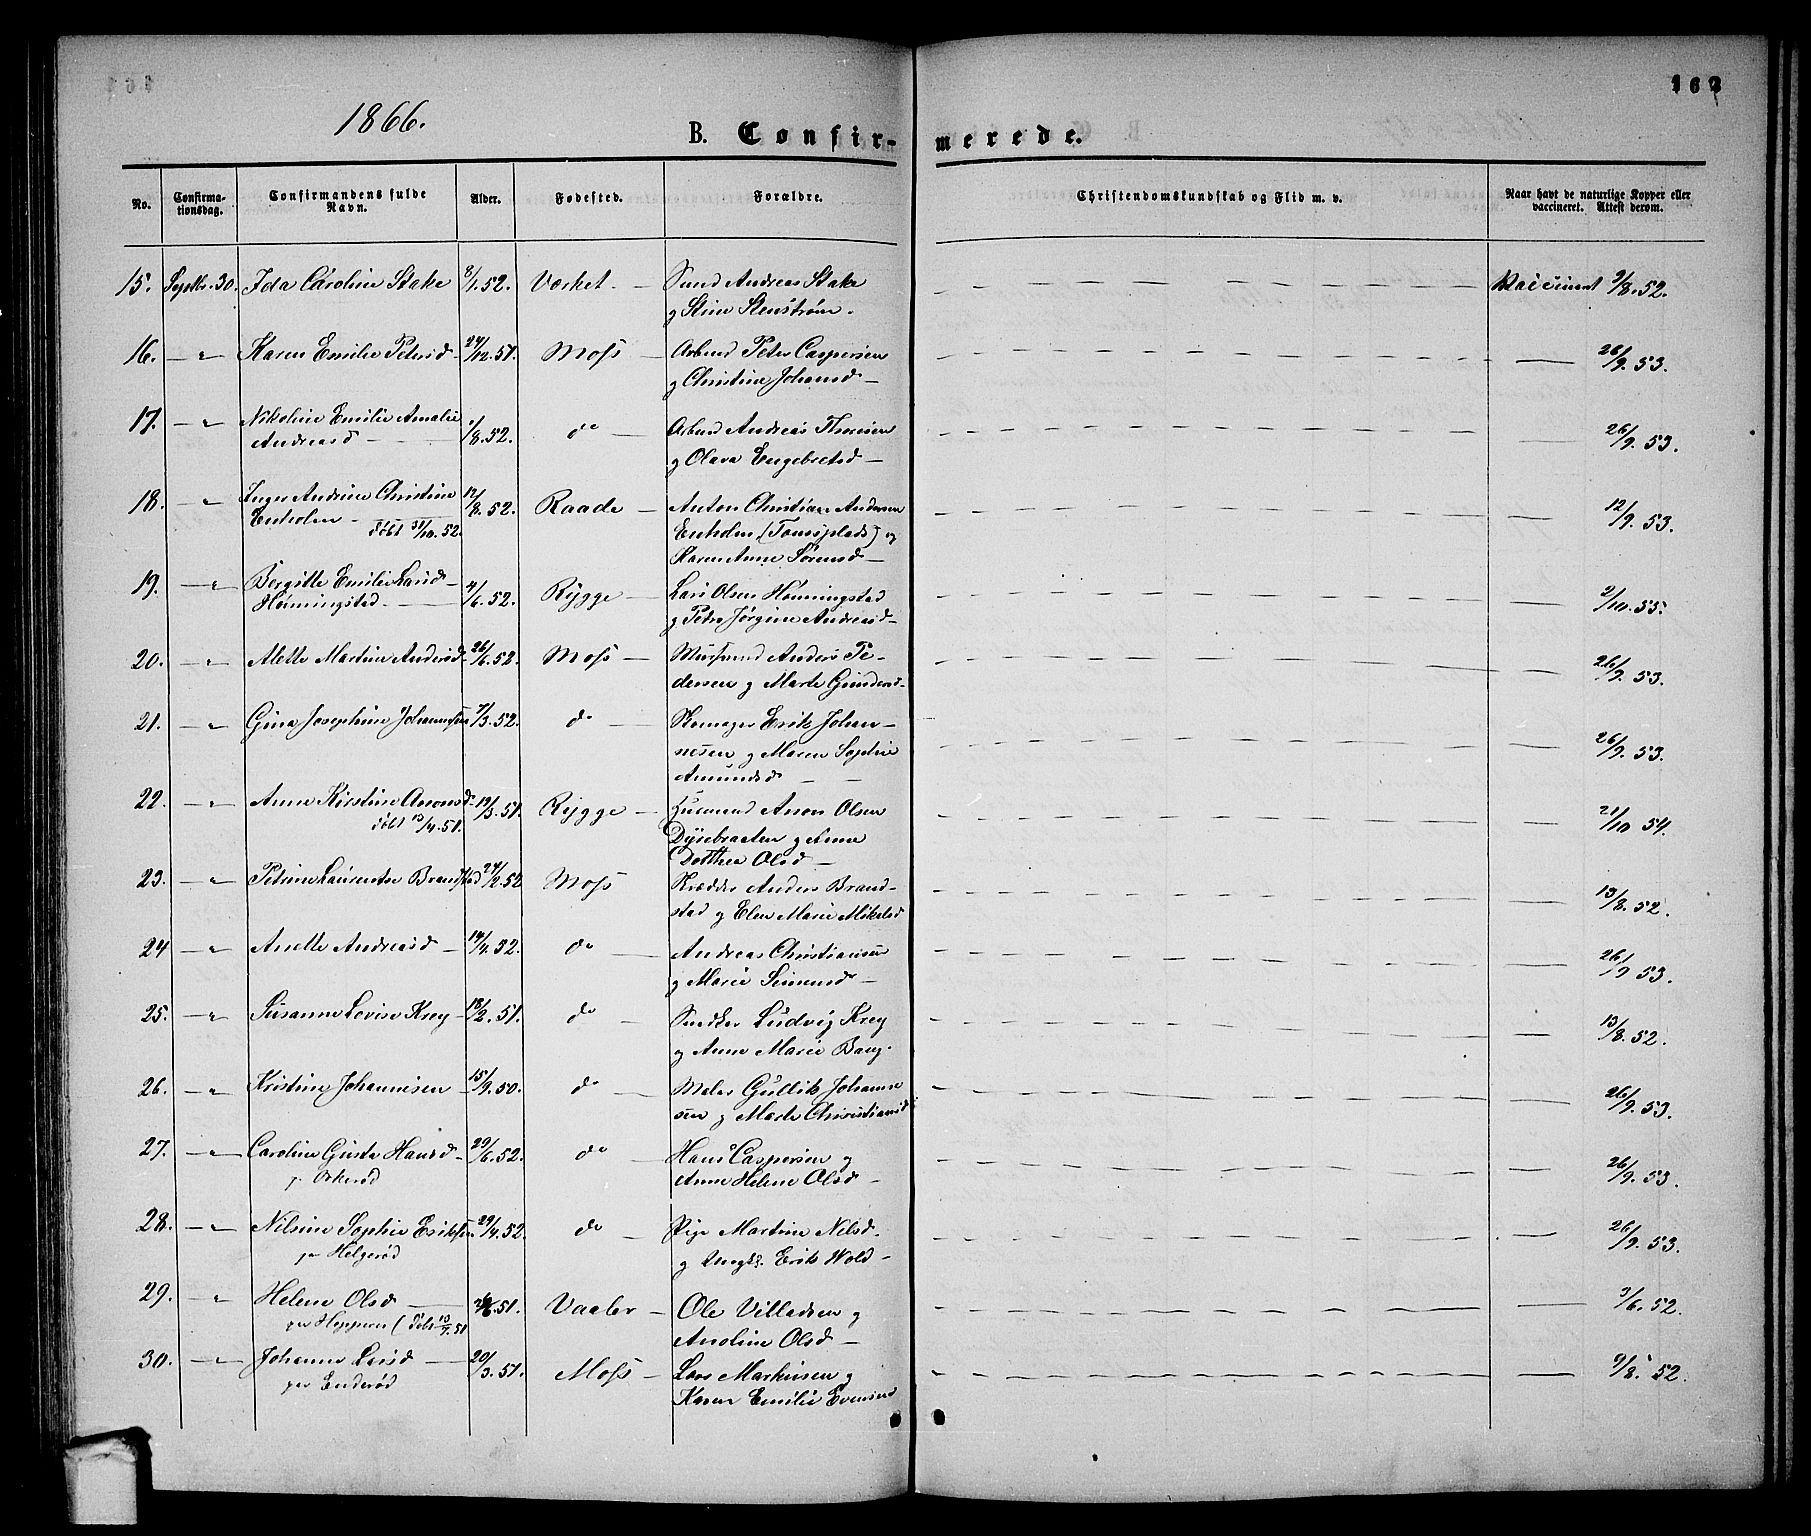 162
1866.
B. Confirmerede.
No.
Confirmationsdag.
Confirmandens fulde Navn.
Alder.
Fødested.
Forældre.
Christendomskundskab og Flid m. v.
Naar havt de naturlige Kopper eller vaccineret. Attest derom.
15. Septbr. 30. Ida Caroline Stake 8/1.52. Værket - Smed Andreas Stake
og Stine Stenstrøm. Vaccineret 9/8.52.
16. — " Karen Emilie Petersd. 24/12.51. Moss — Arbmd Peter Caspersen
og Christine Johansd — 26/9.53.
17. — " Nikoline Emilie Amalie
Andreasd — 1/8.52. do — Arbmd Andreas Thoresen
og Olava Engebretsd — 26/9.53.
18. — " Inger Andrine Christine
Enholm - Døbt 31/10.52. 12/8.52. Raade — Anton Christian Andersen
Enholm (Tomsplads) og
Karen Anne Sørensd — 12/9.53.
19. — " Bergitte Emilie Larsd —
Hønningstad — 4/6.52. Rygge — Lars Olsen Hønningstad
og Petra Jørgine Andreasd - 2/10.55.
20. — " Mette Martine Andersd - 26/6.52. Moss — Murmd Anders Pe-
dersen og Marte Gundersd - 26/9.53.
21. — " Gina Josephine Johannesen 7/3.52. do — Skomager Erik Johan-
nesen og Maren Sophie
Amundsd — 26/9.53.
22. — " Anne Kirstine Anonsd - Døbt 13/4.51. 19/3.51. Rygge — Husmand Anon Olsen
Dyrebraaten og Anne
Dorthea Olsd — 21/10 54.
23. — " Petrine Laurentse Brandstad 24/2.52 Moss Skrædder Anders Brand-
stad og Elen Marie Mikelsd 13/8.52.
24 — " Anette Andreasd — 14/4.52. do — Andreas Christiansen
og Marie Simensd — 26/9 53.
25. — " Susanne Lovise Krey - 18/2.51. do — Snedker Ludvig Krey
og Anne Marie Bang. 13/8.52.
26. — " Kristine Johannesen - 15/9.50. do — Maler Gullik Johanne
sen og Marte Christiansd 26/9.53.
27. — " Caroline Gusta Hansd -
pr Orkerød 29/6.52. do — Hans Caspersen og
Anne Helene Olsd — 26/9.53.
28. — " Nilsine Sophie Eriksen
pr Helgerød 29/4.52. do — Pige Martine Nilsd.
og Ungk. Erik Wold - 26/9.53.
29. — " Helene Olsd —
pr Hoppern (Døbt 10/9.51 6.51. Vaaler — Ole Villadsen og
Anoline Olsd — 3/6.52.
30. — " Johanne Larsd —
pr Enderød 20/3.51. Moss — Lars Markusen og
Karen Emilie Evensend 9/8.52.